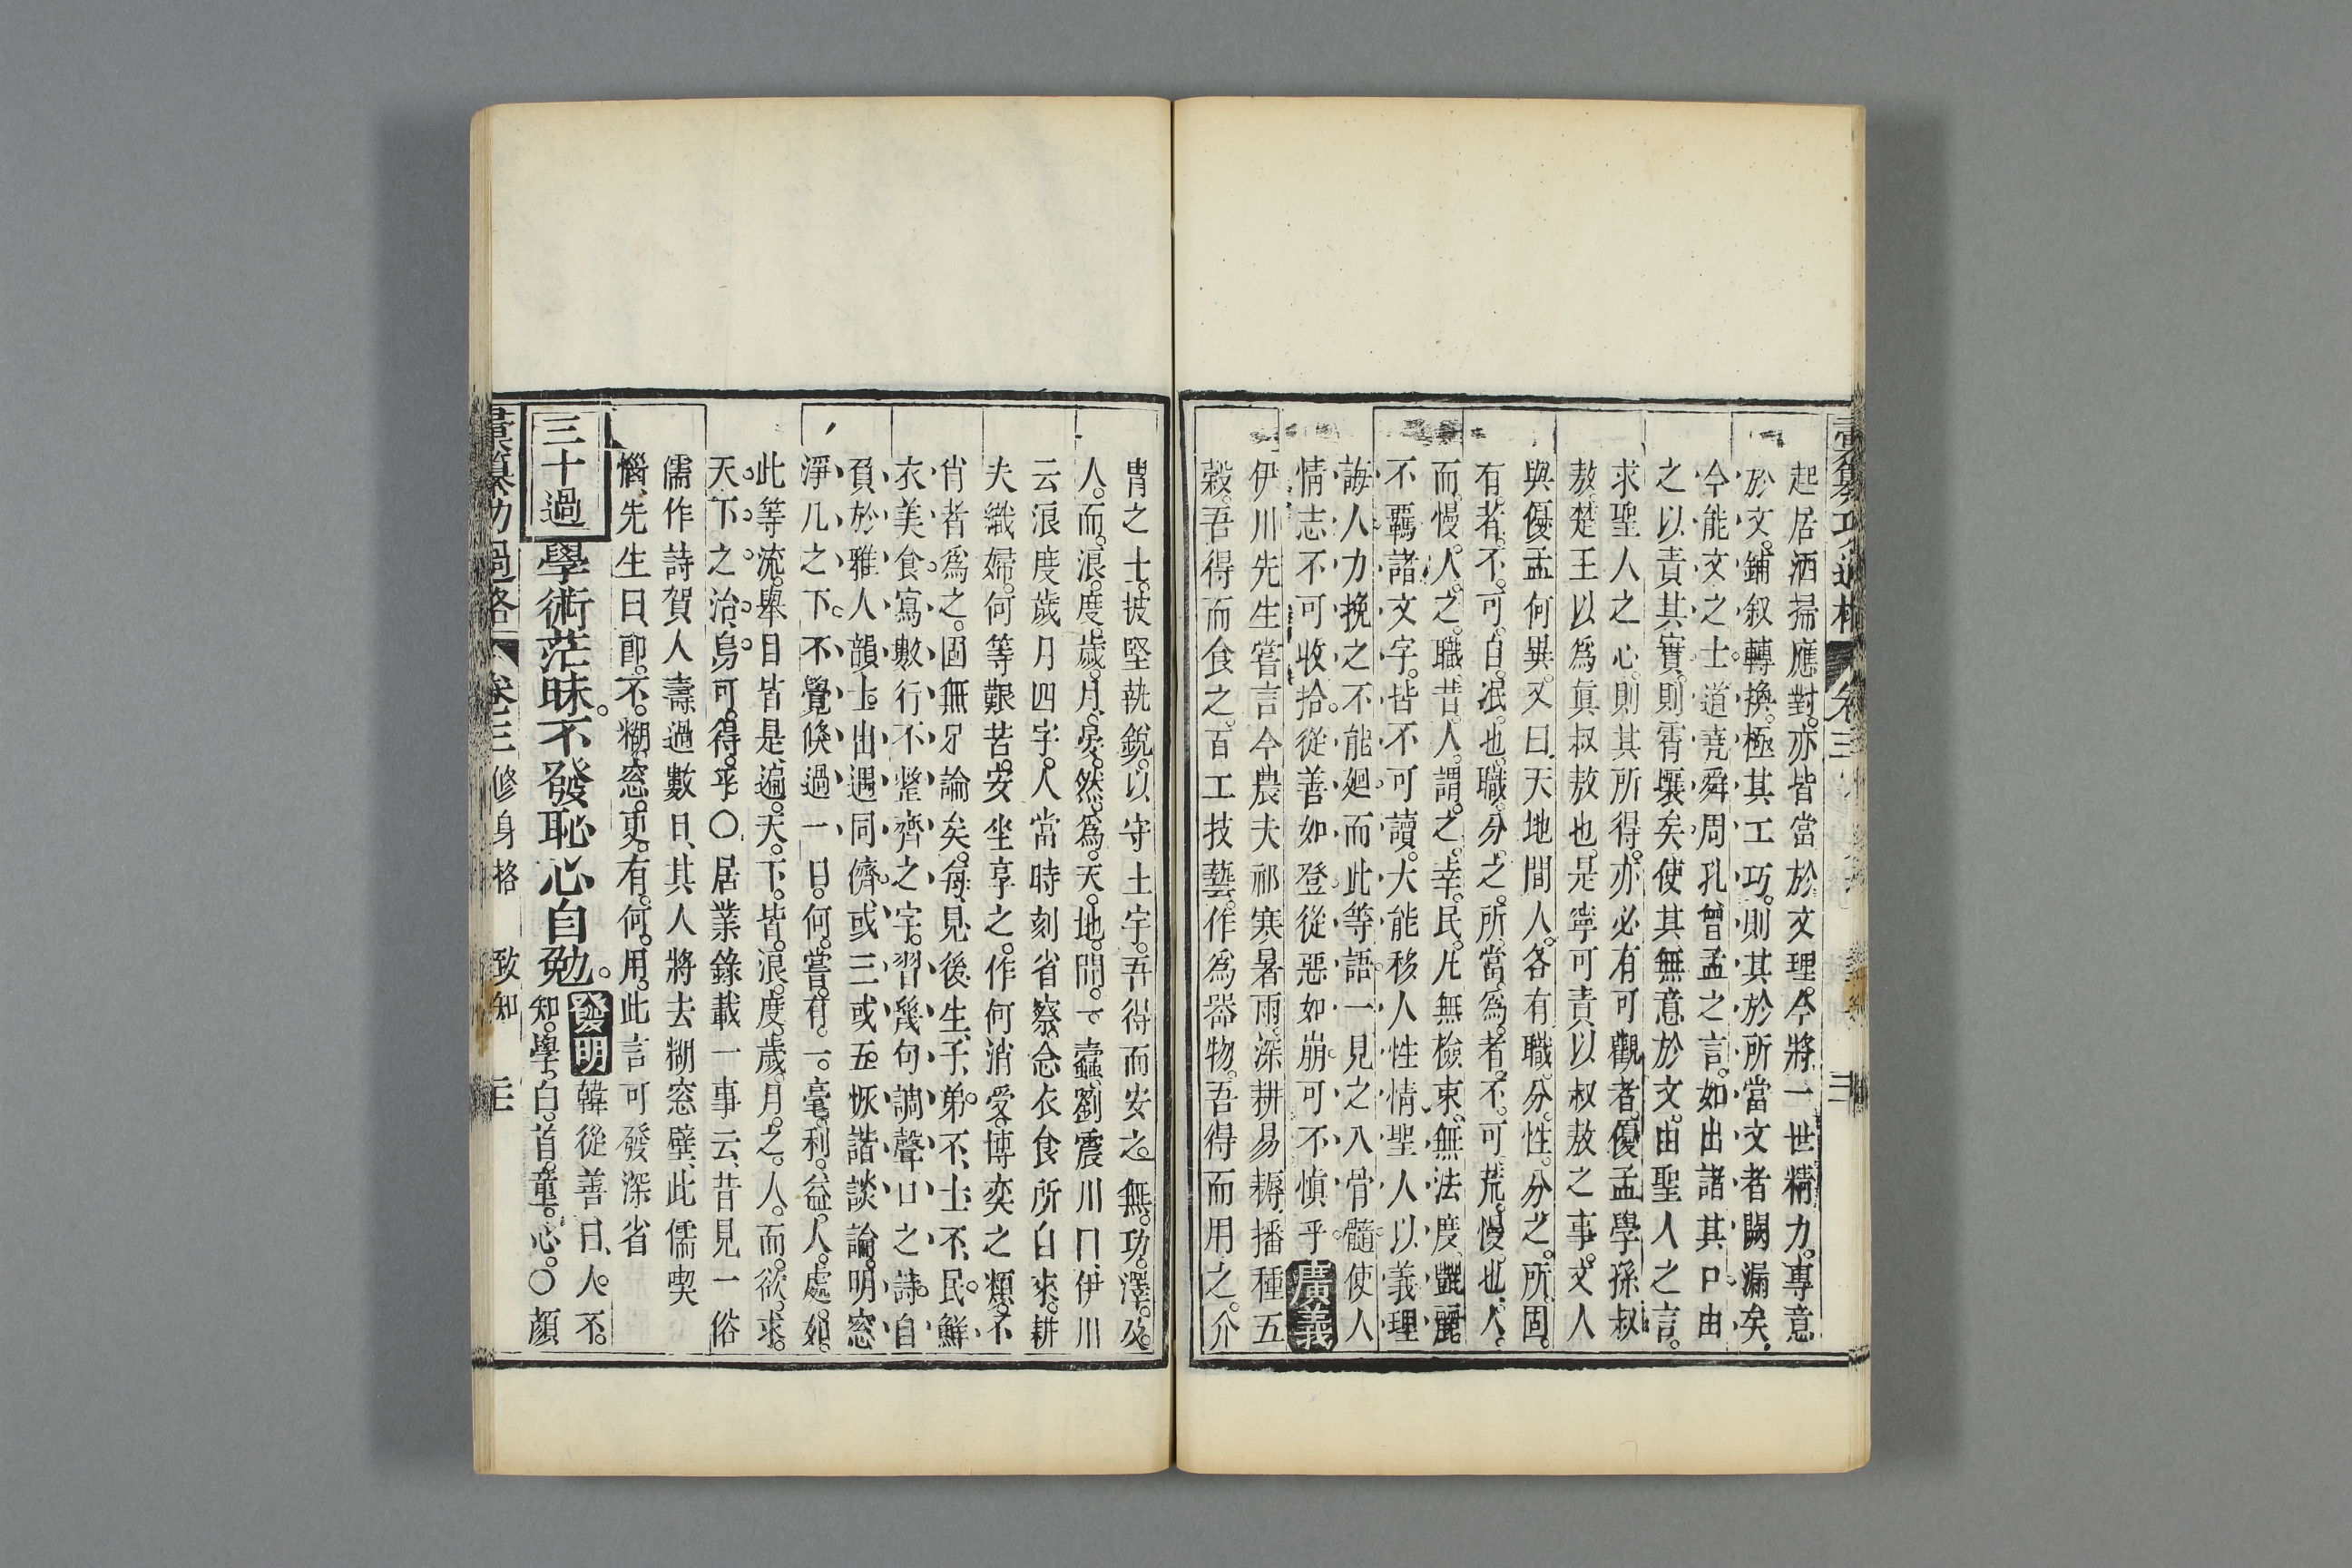 彙纂功過格 卷三
起居洒掃應對亦皆當於文理今將一世精力專意
於文鋪叙轉換極其工巧則其於所當文者闕漏矣
今能文之士道堯舜周孔曾孟之言如出諸其口由
之以責其實則霄壤矣使其無意於文由聖人之言
求聖人之心則其所得亦必有可觀者優孟學孫叔
敖楚王以為眞叔敖也是寧可責以叔敖之事文人
與優孟何異又曰天地間人各有職分性分之所固
有者不可自泯也職分之所當為者不可荒慢也人
而慢人之職昔人謂之幸民凡無檢束無法度豔麗
不羈諸文字皆不可讀大能移人性情聖人以義理
誨人力挽之不能廻而此等語一見之入骨髓使人
情志不可收拾從善如登從惡如崩可不慎乎 廣義
伊川先生嘗言今農夫祁寒暑雨深耕易耨播種五
穀吾得而食之百工技藝作為器物吾得而用之介
冑之士披堅執銳以守土宇吾得而安之無功澤及
人而浪度歲月晏然為天地間一蠹劉震川曰伊川
云浪度歲月四字人當時刻省察念衣食所自來耕
夫織婦何等艱苦安坐享之作何消受博奕之類不
肖者為之固無足論矣每見後生子弟不士不民鮮
衣美食寫數行不整齊之字習幾句調聲口之詩自
負於雅人韻士出遇同儕或三或五恢諧談論明窓
淨几之下不覺倏過一日何嘗有一毫利益人處如
此等流舉目皆是遍天下皆浪度歲月之人而欲求
天下之治烏可得乎○居業錄載一事云昔見一俗
儒作詩賀人壽過數日其人將去糊窓壁此儒喫
惱先生曰卽不糊窓更有何用此言可發深省
三十過 學術茫昧不發恥心自勉 發明 韓從善曰人不
知學白首童心○顏
彙纂功過格 卷三 修身格 致知